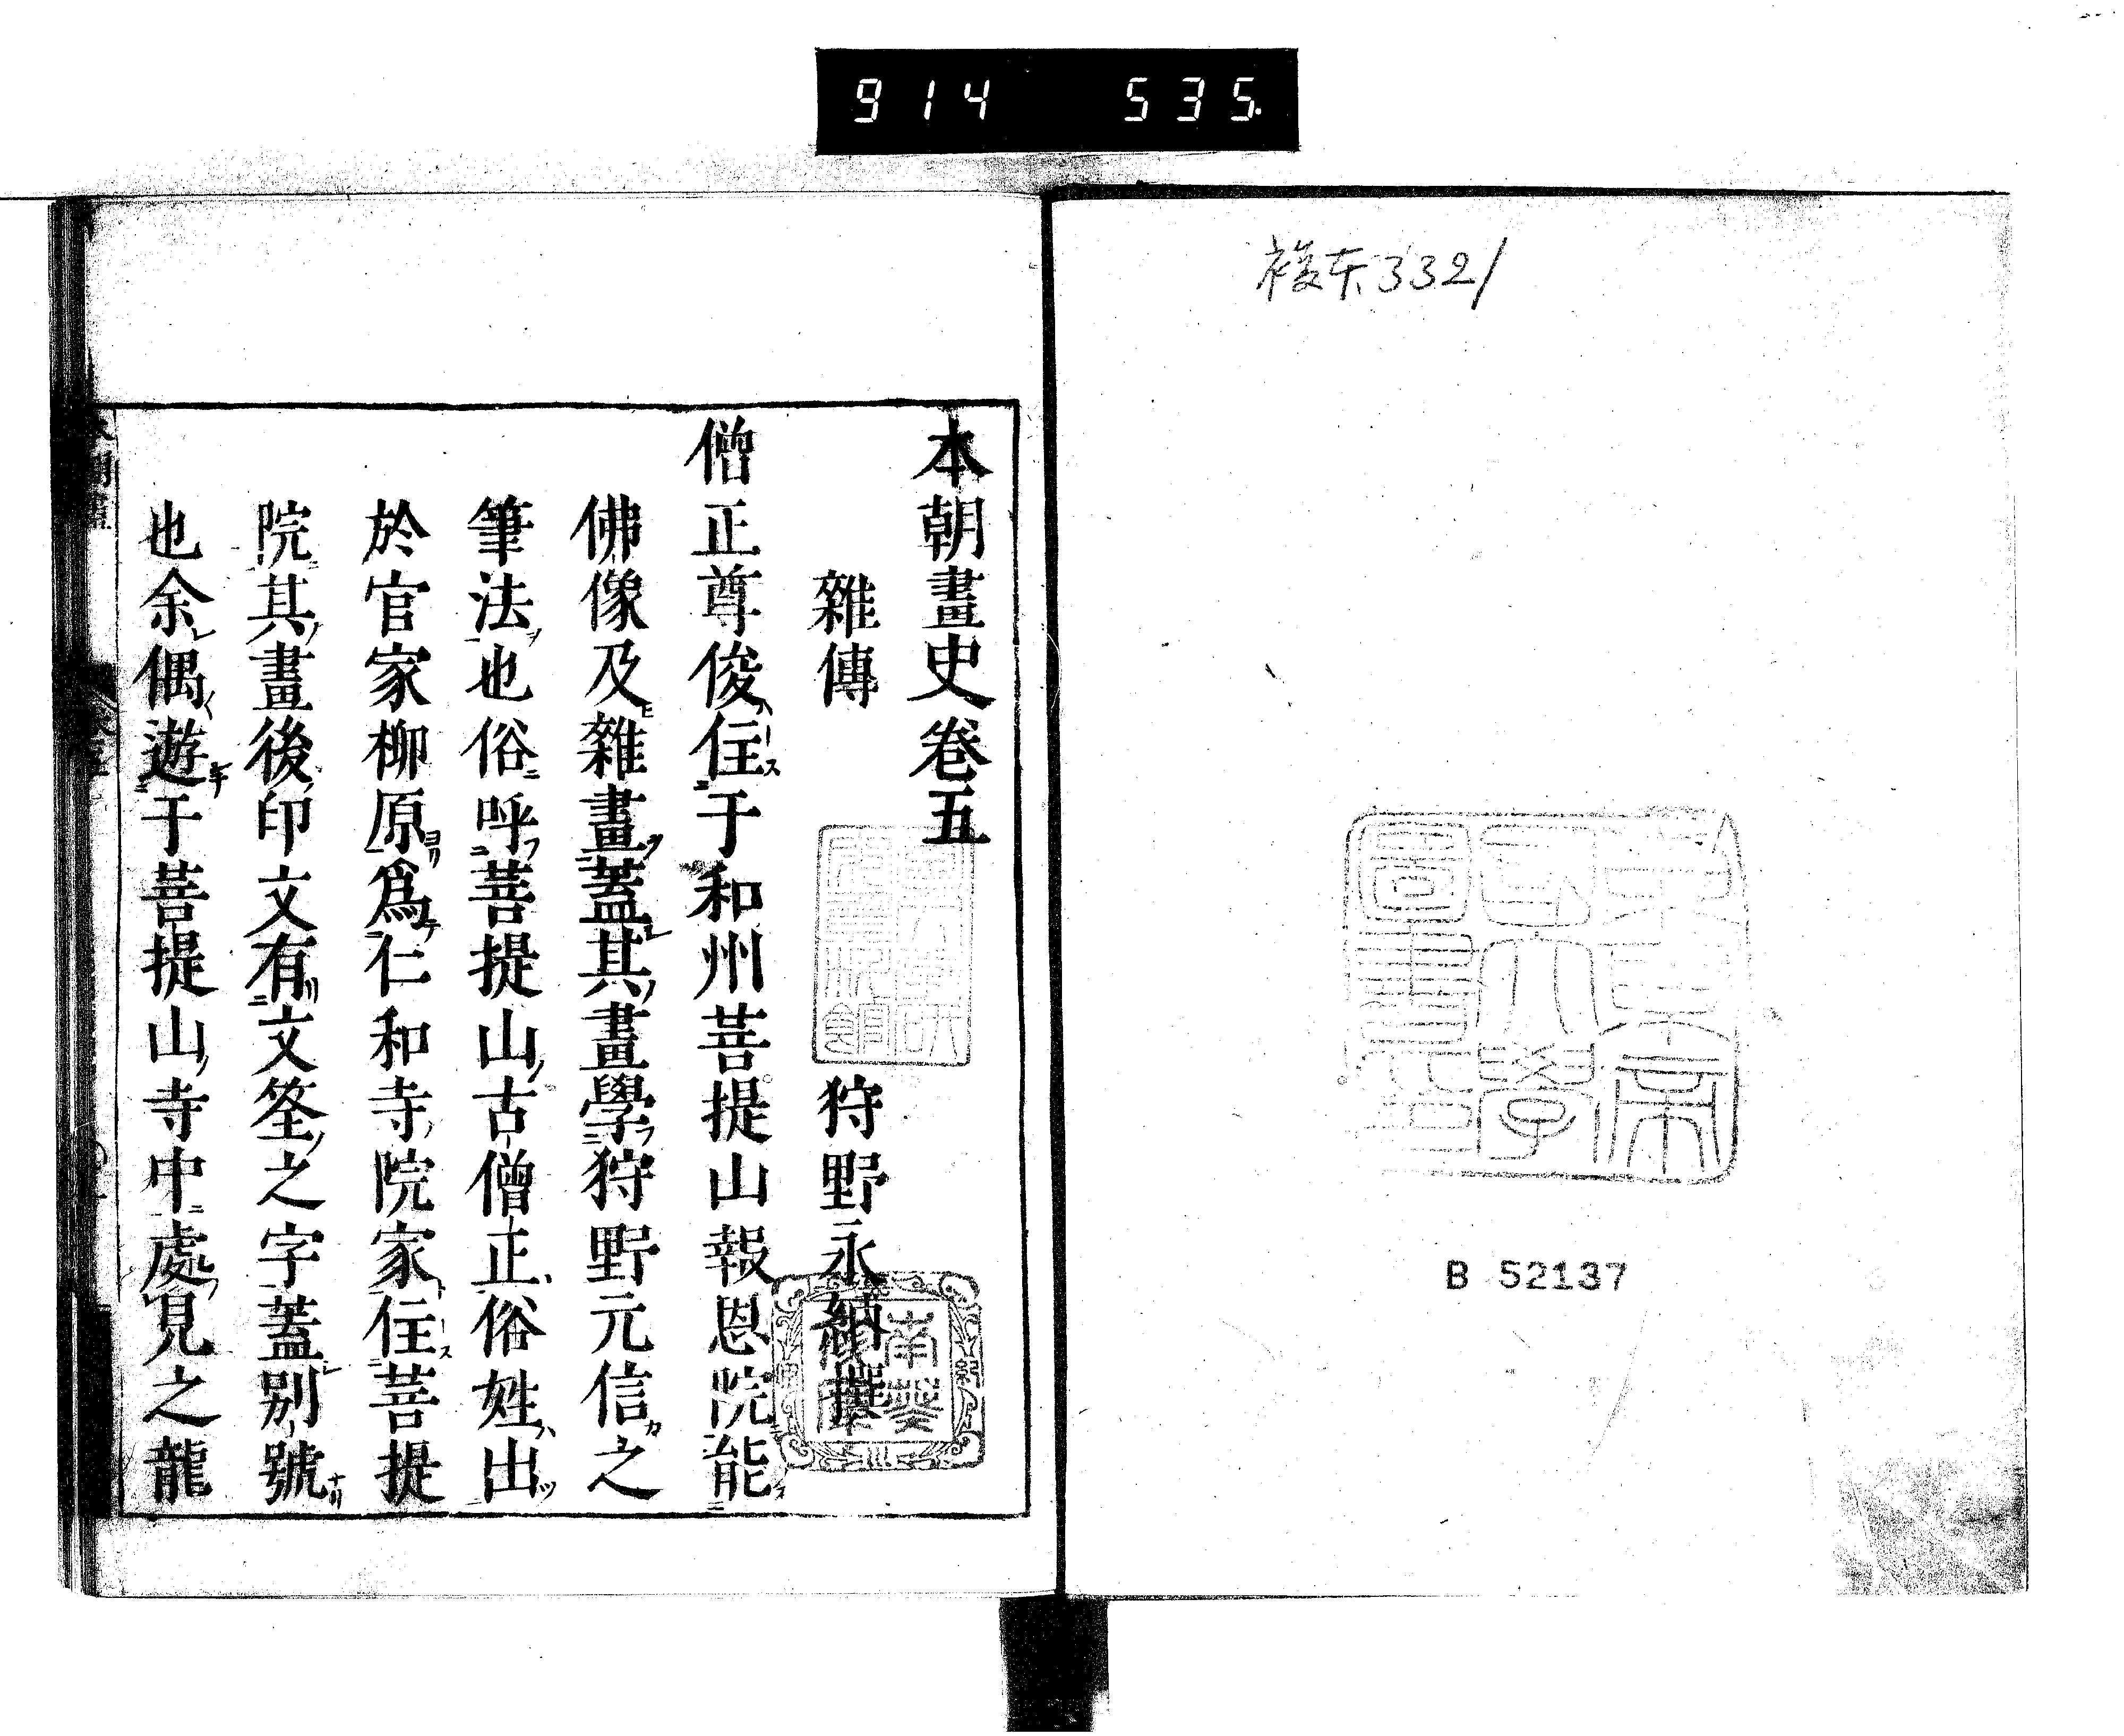 914 535
複本3321
東京帝國大學圖書印
B 52137
本朝畫史卷五
雜傳
狩野永納撰
僧正尊俊住于和州菩提山報恩院能
佛像及雜畫蓋其畫學狩野元信之
筆法也俗呼菩提山古僧正俗姓出
於官家柳原爲仁和寺院家住菩提
院其畫後印文有文筌之字蓋別號
也余偶遊于菩提山寺中處見之龍